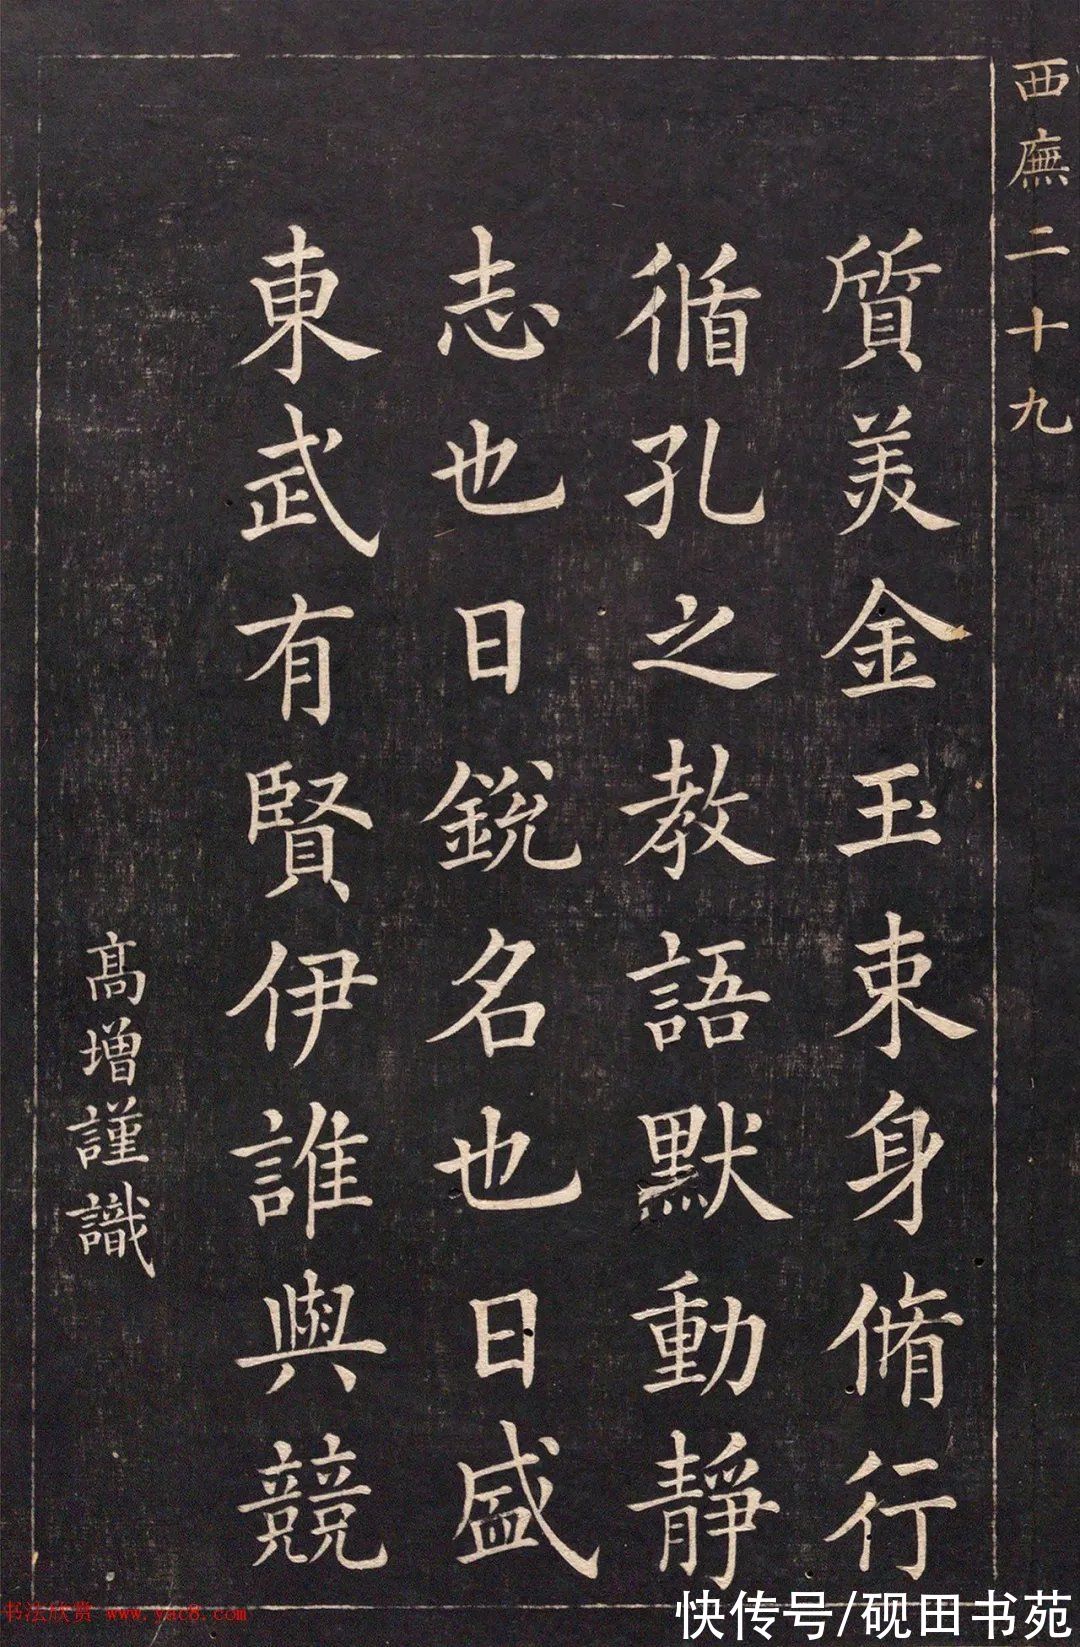 西廡二十九
質美金玉束身脩行
循孔之教語默動靜
志也日銳名也日盛
東武有賢伊誰與競
高增謹識
书法欣赏 www.yac8.com
快传号/砚田书苑